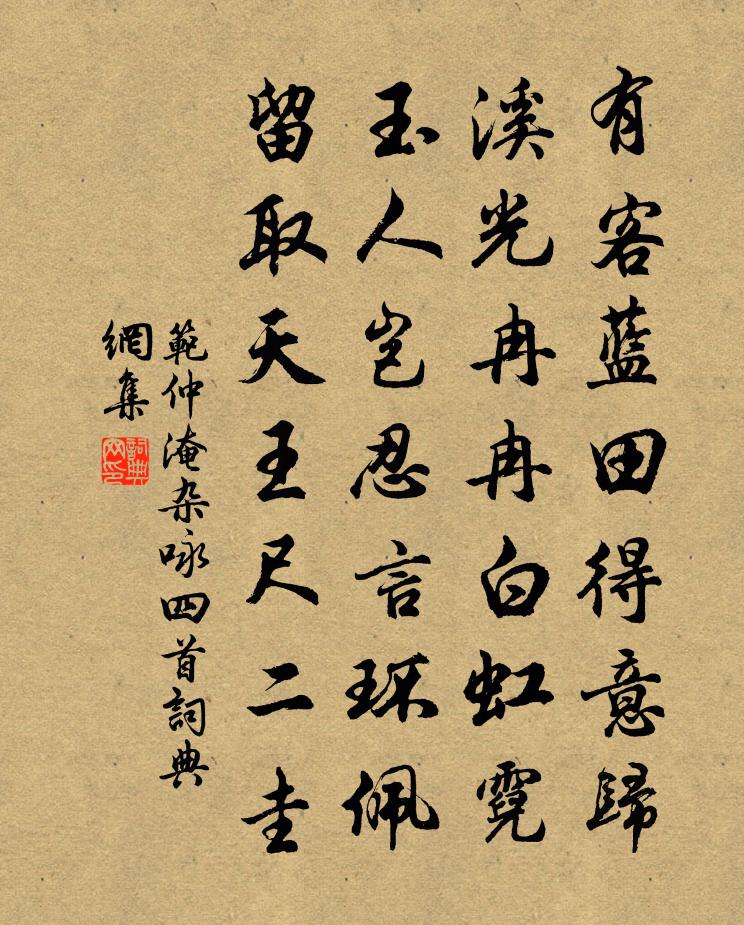 有客藍田得意歸
溪光冉冉白虹霓
玉人岂忍言环佩
留取天王尺二圭
範仲淹杂咏四首詞典
網集
詞典
网印